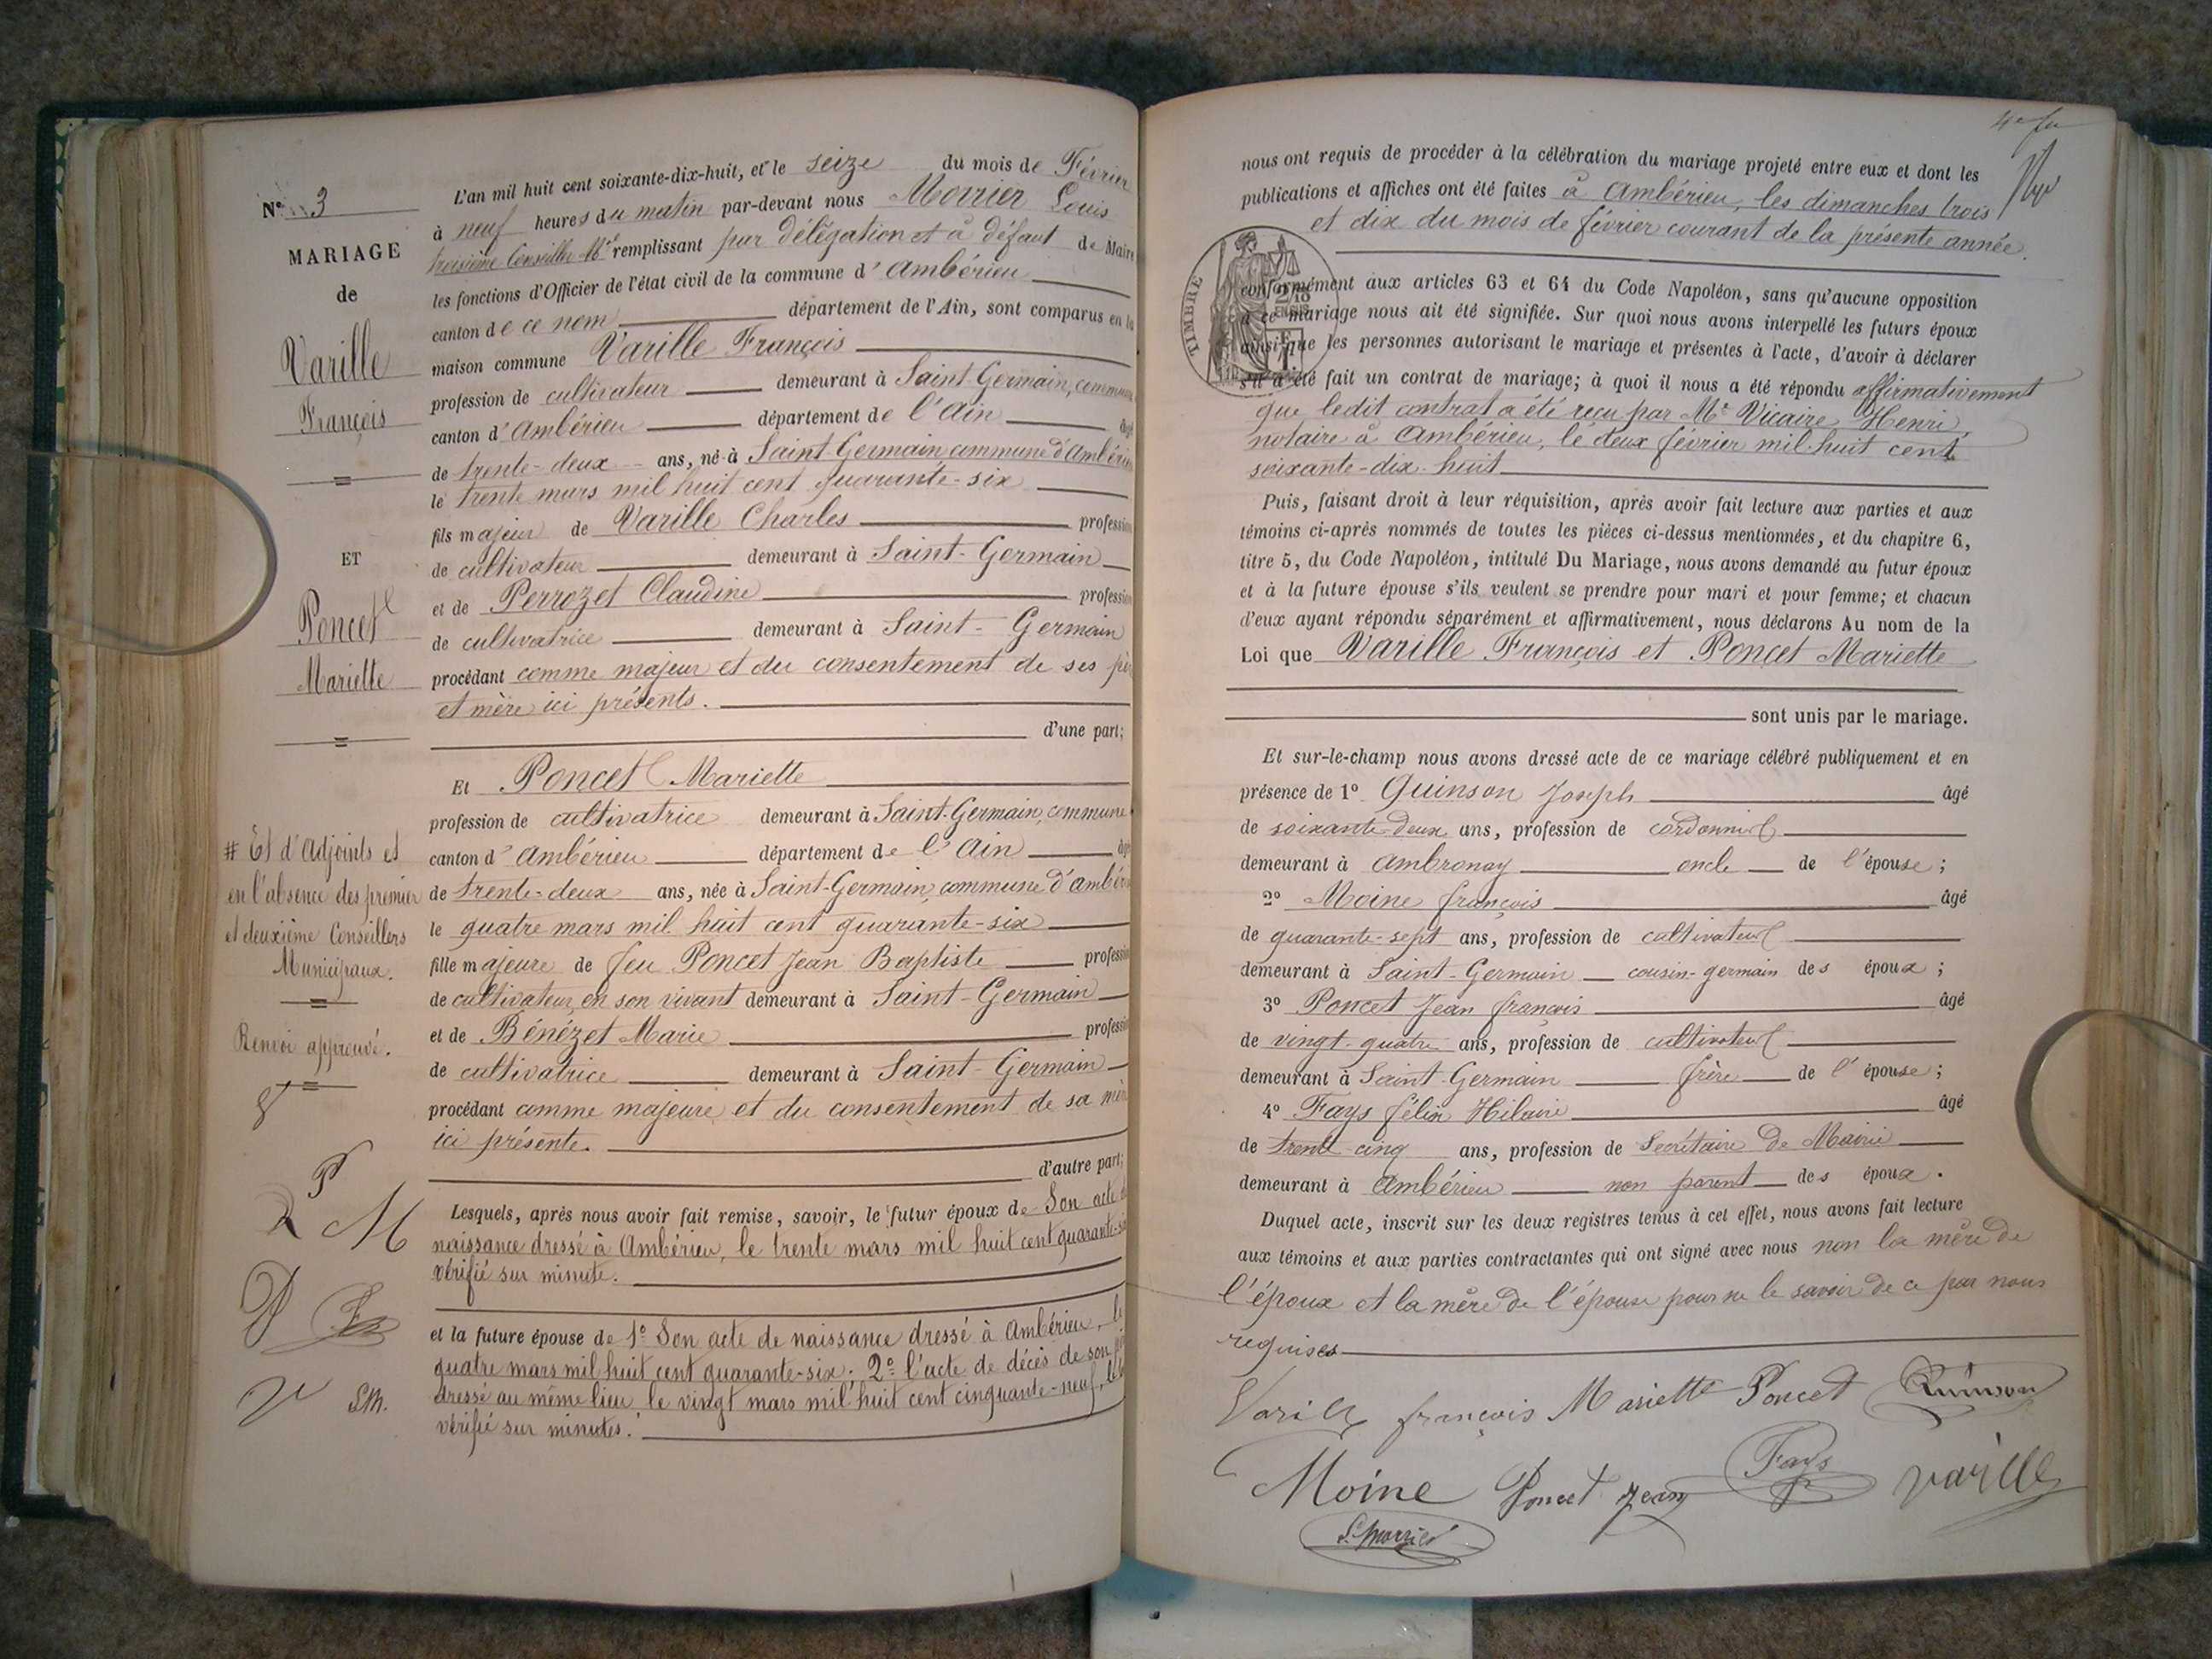 N° 3
MARIAGE
de
Varille
François
ET
Poncet
Mariette
# Et d'Adjoints et
en l'absence des premier
et deuxième Conseillers
Municipaux.
Renvoi approuvé.
P
M
F
V
S.M.
L'an mil huit cent soixante-dix-huit, et le seize du mois de Février
à neuf heures du matin par-devant nous Morrier Louis
troisième Conseiller Mal remplissant par délégation et à défaut de Maire
les fonctions d'Officier de l'état civil de la commune d'Ambérieu
canton de ce nom département de l'Ain, sont comparus en la
maison commune Varille François
profession de cultivateur demeurant à Saint-Germain, commune
canton d'Ambérieu département de l'Ain âgé
de trente-deux ans, né à Saint-Germain commune d'Ambérieu
le trente mars mil huit cent quarante-six
fils majeur de Varille Charles profession
de cultivateur demeurant à Saint-Germain
et de Perrozet Claudine profession
de cultivatrice demeurant à Saint-Germain
procédant comme majeur et du consentement de ses père
et mère ici présents.
d'une part;
Et Poncet Mariette
profession de cultivatrice demeurant à Saint-Germain, commune
canton d'Ambérieu département de l'Ain âgée
de trente-deux ans, née à Saint-Germain, commune d'Ambérieu
le quatre mars mil huit cent quarante-six
fille majeure de feu Poncet Jean Baptiste profession
de cultivateur, en son vivant demeurant à Saint-Germain
et de Bénézet Marie profession
de cultivatrice demeurant à Saint-Germain
procédant comme majeure et du consentement de sa mère
ici présente.
d'autre part;
Lesquels, après nous avoir fait remise, savoir, le futur époux de Son acte de
naissance dressé à Ambérieu, le trente mars mil huit cent quarante-six
vérifié sur minute.
et la future épouse de 1° Son acte de naissance dressé à Ambérieu, le
quatre mars mil huit cent quarante-six; 2° l'acte de décès de son père
dressé au même lieu le vingt mars mil huit cent cinquante-neuf,
vérifié sur minutes.
nous ont requis de procéder à la célébration du mariage projeté entre eux et dont les
publications et affiches ont été faites à Ambérieu, les dimanches trois
et dix du mois de février courant de la présente année.
TIMBRE
conformément aux articles 63 et 64 du Code Napoléon, sans qu'aucune opposition
à ce mariage nous ait été signifiée. Sur quoi nous avons interpellé les futurs époux
ainsi que les personnes autorisant le mariage et présentes à l'acte, d'avoir à déclarer
s'il a été fait un contrat de mariage; à quoi il nous a été répondu affirmativement
que ledit contrat a été reçu par Me Vicaire Henri,
notaire à Ambérieu, le deux février mil huit cent
soixante-dix-huit
Puis, faisant droit à leur réquisition, après avoir fait lecture aux parties et aux
témoins ci-après nommés de toutes les pièces ci-dessus mentionnées, et du chapitre 6,
titre 5, du Code Napoléon, intitulé Du Mariage, nous avons demandé au futur époux
et à la future épouse s'ils veulent se prendre pour mari et pour femme; et chacun
d'eux ayant répondu séparément et affirmativement, nous déclarons Au nom de la
Loi que Varille François et Poncet Mariette
sont unis par le mariage.
Et sur-le-champ nous avons dressé acte de ce mariage célébré publiquement et en
présence de 1° Quinson Joseph âgé
de soixante-deux ans, profession de cordonnier
demeurant à Ambronay oncle de l'épouse;
2° Moine françois âgé
de quarante-sept ans, profession de cultivateur
demeurant à Saint-Germain cousin-germain des époux;
3° Poncet Jean françois âgé
de vingt-quatre ans, profession de cultivateur
demeurant à Saint-Germain frère de l'épouse;
4° Fays félix Hilaire âgé
de trente-cinq ans, profession de Secrétaire de Mairie
demeurant à Ambérieu non parent des époux.
Duquel acte, inscrit sur les deux registres tenus à cet effet, nous avons fait lecture
aux témoins et aux parties contractantes qui ont signé avec nous non la mère de
l'époux et la mère de l'épouse pour ne le savoir de ce par nous
requises
Varille françois Mariette Poncet Quinson
Moine Poncet Jean Fays varille
L. Morrier